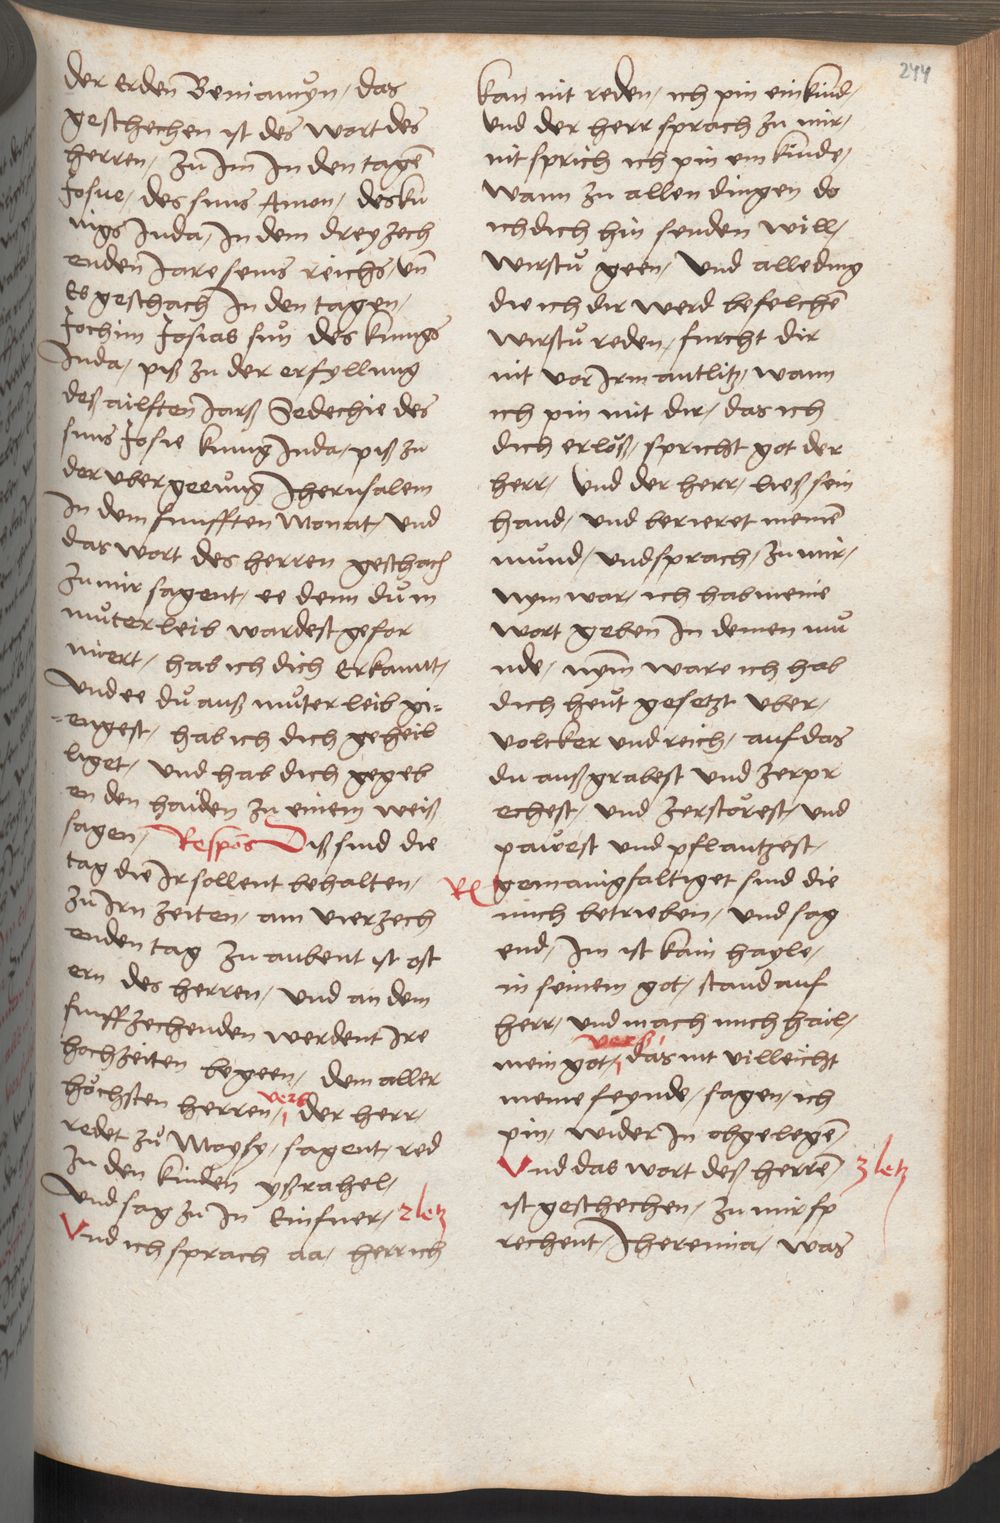 244
der erden Beniamyn, das
geschechen ist des wort des
herren, zu Im In den tagē
Josue, des suns Amon, des ku
nigs Juda, In dem dreyzech
enden Jare seins reichs vn̄
Es geschach In den tagen,
Jochim Josias sun des kunigs
Juda, piß zu der erfyllung
deß ailften Jarß Sedechie des
suns Josie kunig Juda, piß zu
der vbergeeung Jherusalem
In dem funfften Monat, und
das wort des herren geschach
zu mir sagent, ee denn du in
muterleib wardest gefor
miert, hab ich dich erkannt,
und ee du auß muter leib gi=
=engest, hab ich dich geheili
liget, und hab dich gegeb
en den haiden zu einem weiß
sagen, Respōs Diß sind die
tag die Ir sollent behalten,
zu Irn zeiten, am vierzech
enden tag zu aubent ist ost
ern des herren, und an dem
funffzechenden werdent Ire
hochzeiten begeen, dem aller
höchsten herren, vers der herr,
redet zu Moysy, sagent, red
zu den kinden yßrahel,
und sag zu In Einfuer, 2 letz
Und ich sprach aa, herr ich
kan nit reden, ich pin ein kind,
und der herr sprach zu mir,
nit sprich ich pin ein kinde,
wann zu allen dingen do
ich dich hin senden will,
wirstu geen, und alle ding
die ich dir werd befelchē
wirstu reden, furcht dir
nit vor Irm antlitz, wann
ich pin mit dir, das ich
dich erlöß, spricht got der
herr, und der herr, ließ sein
hand, und berieret meinē
mund, und sprach, zu mir,
nym war, ich hab meine
wort geben In deinen mu
nde, nym ware ich hab
dich heut gesetzt vber,
volcker und reich, auf das
du außgrabest und zerpr
echest, und zerstörest, und
pawest und pflantzest,
R gemanigfaltiget sind die
mich betrieben, und sag
end, Im ist kain hayle,
in seinem got, stand auf
herr, und mach mich hail,
mein got, vers das nit villeicht
meine feynde, sagen, ich
pin, wider In obgelegē,
Und das wort deß herrē 3 letz
ist geschechen, zu mir sp
rechent, Jheremia, was